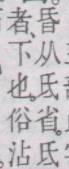 昏从氐省。氐
者、下也。俗沾